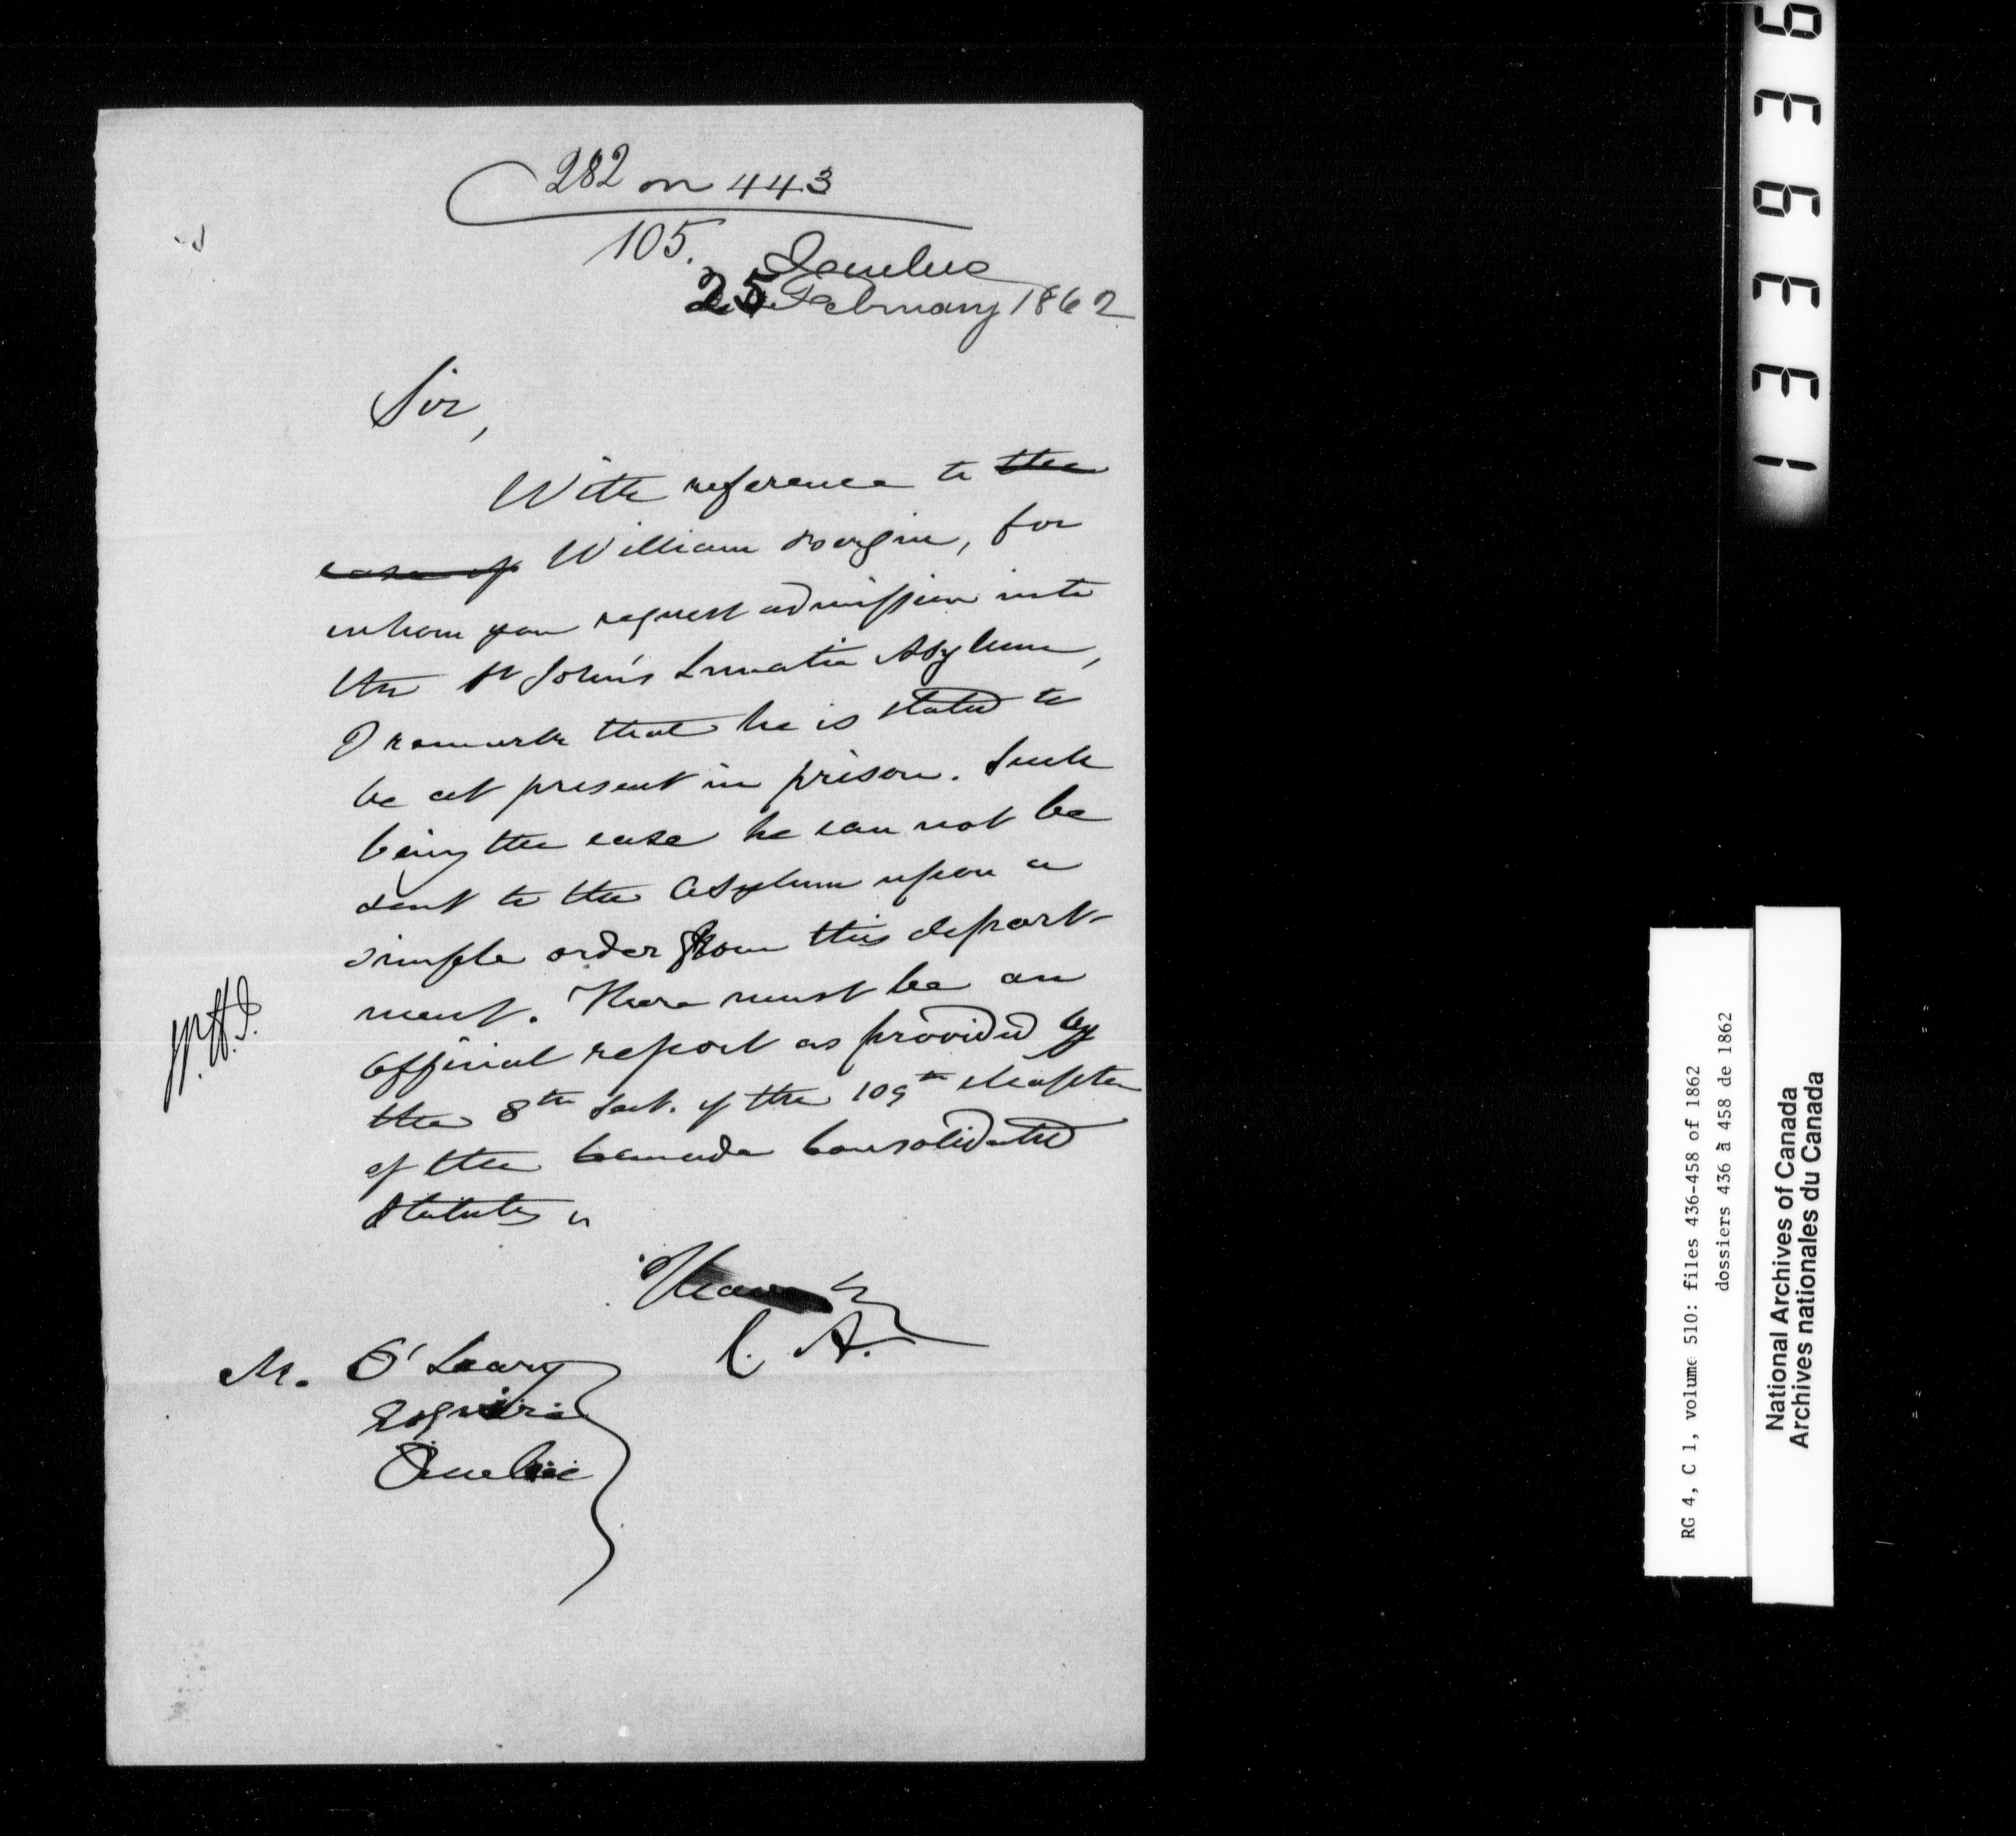 282 on 443
105.
Quebec
25 February 1862
Sir,
With reference to the
case of William Bergin, for
whom you request admission into
the St John's Lunatic Asylum,
I remark that he is stated to
be at present in prison. Such
being the case he can not be
sent to the Asylum upon a
simple order from this depart-
ment. There must be an
official report as provided by
the 8th Sect. of the 109th chapter
of the Canada Consolidated
Statutes
I have
C. A.
M. O'Leary
Esquire
Quebec
133936
RG 4, C 1, volume 510: files 436-458 of 1862
dossiers 436 à 458 de 1862
National Archives of Canada
Archives nationales du Canada